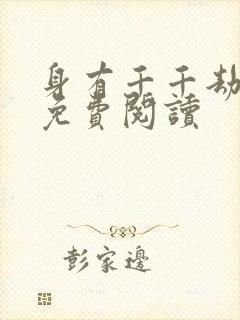 身有千千劫
免費閱讀
彭家邊